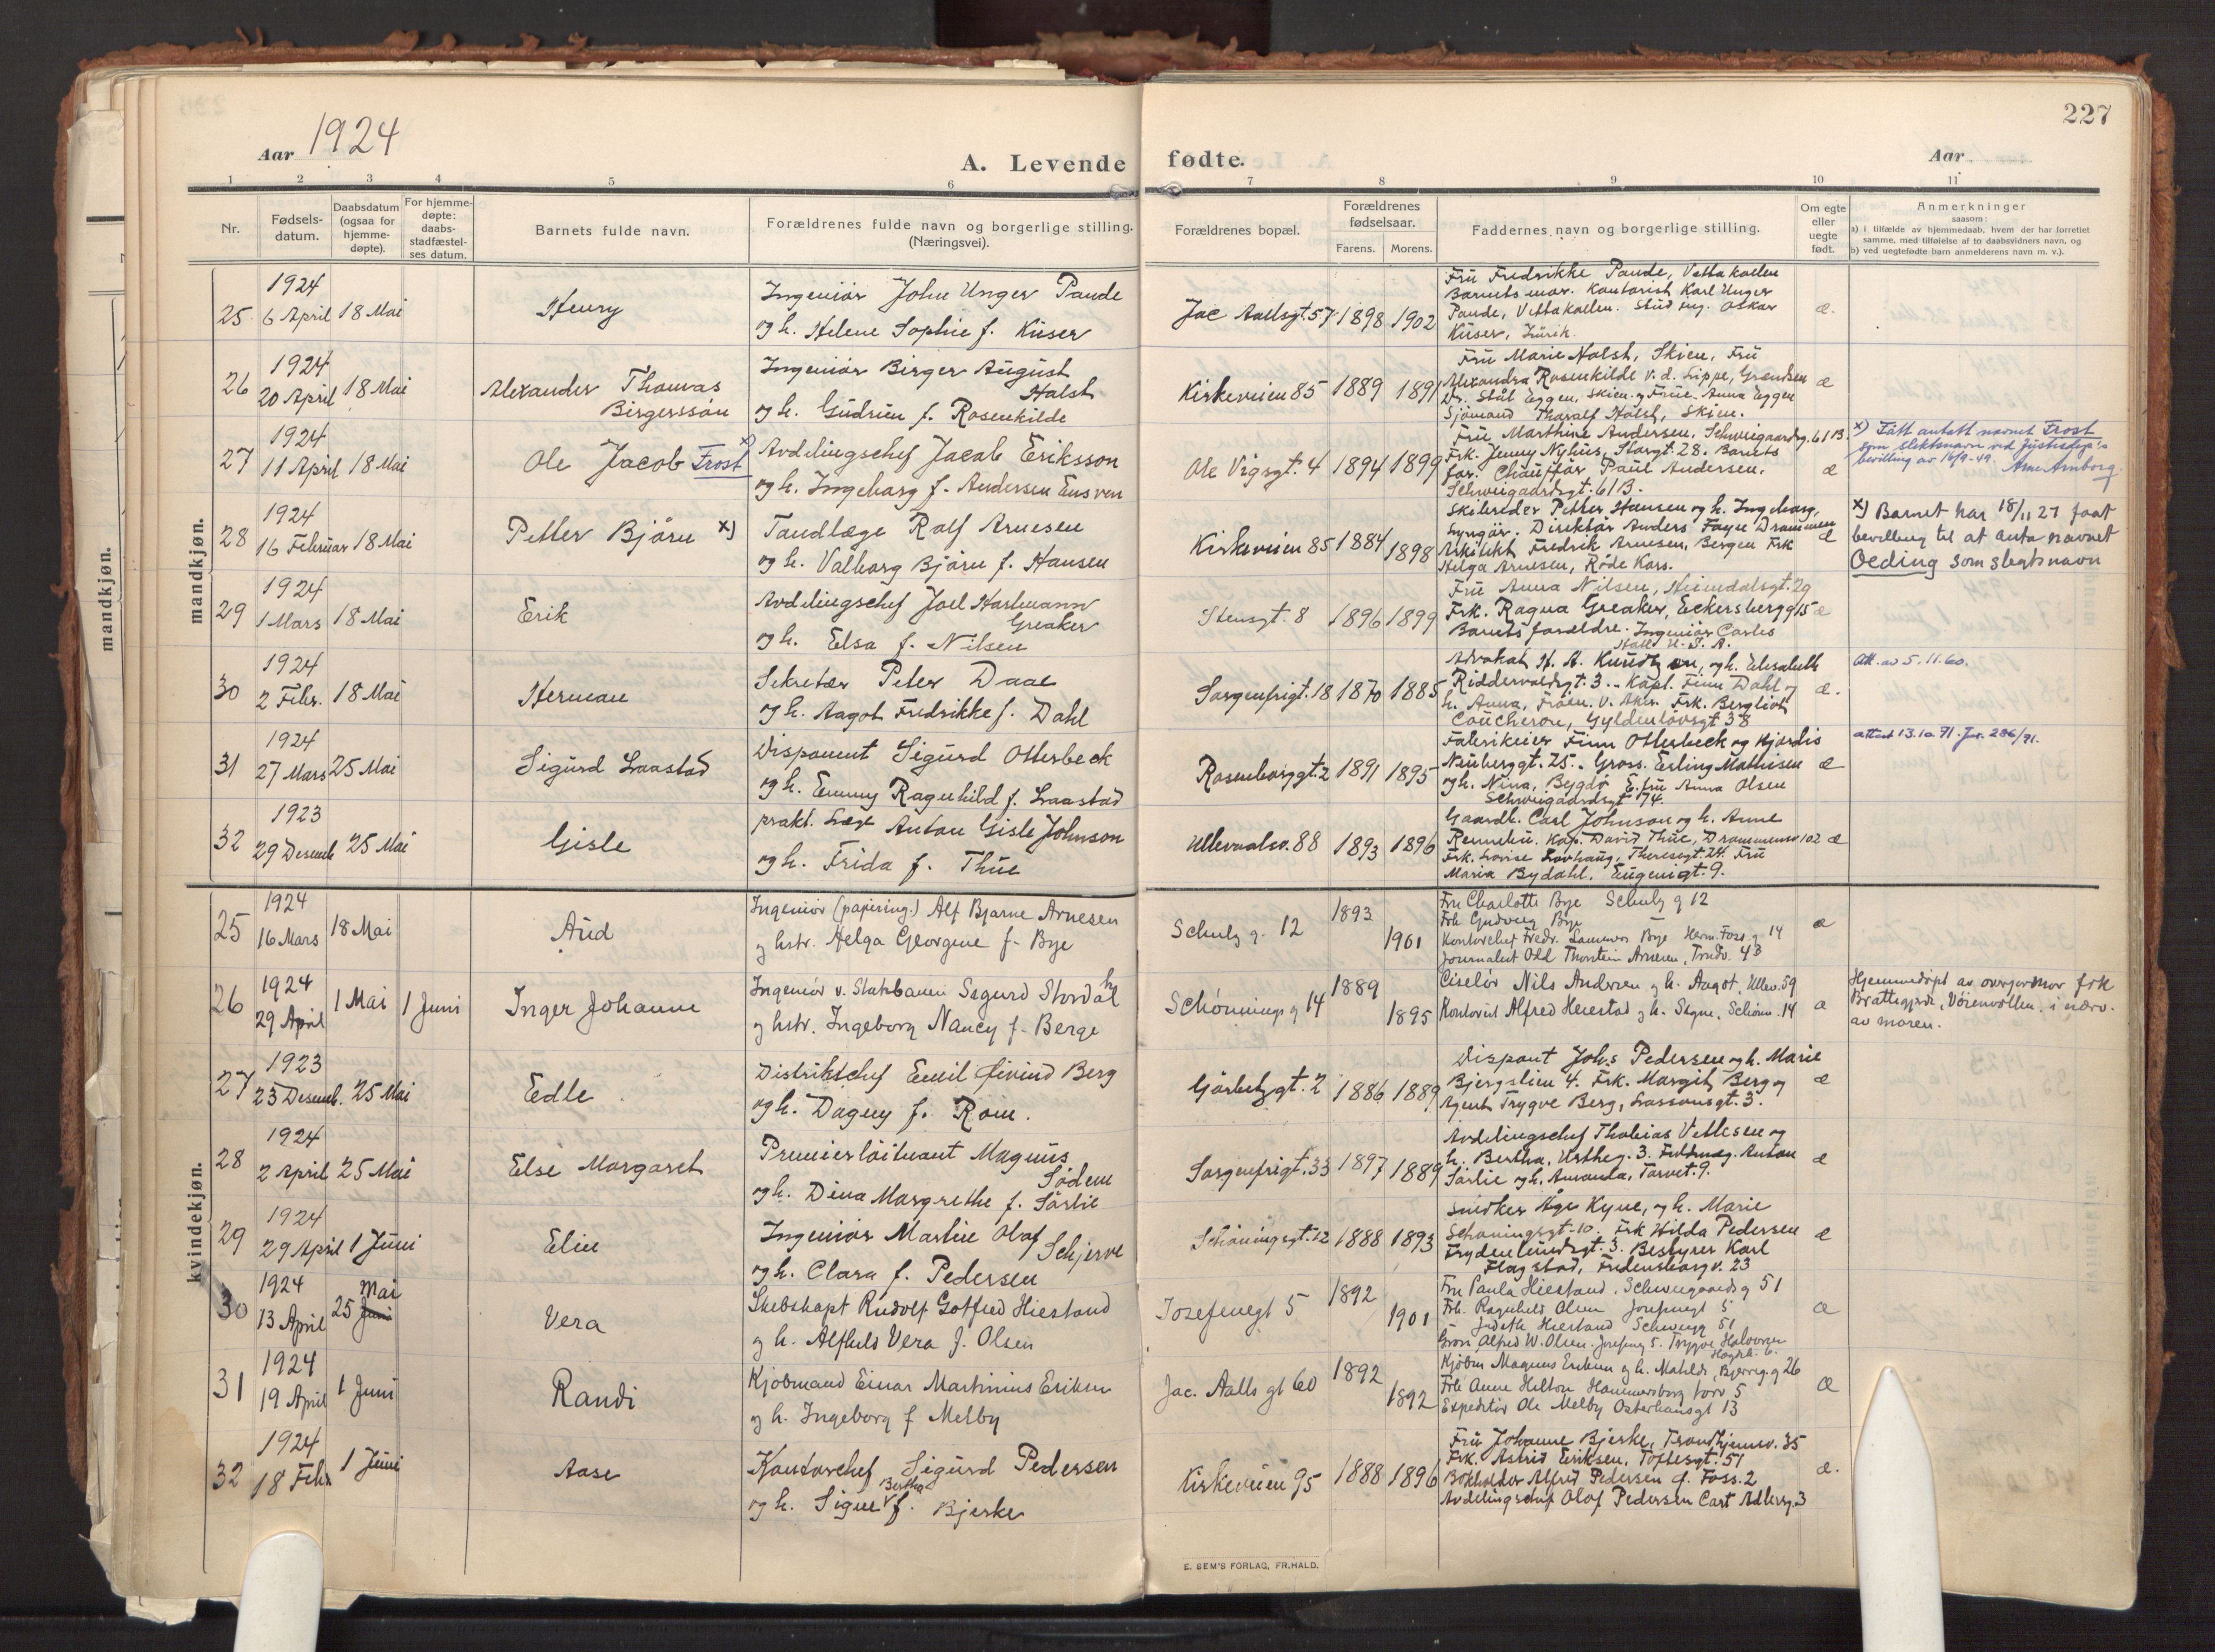 227
Aar 1924
A. Levende fødte.
Aar
1 2 3 4 5 6 7 8 9 10 11
Nr.
Fødsels-
datum.
Daabsdatum
(ogsaa for
hjemme-
døpte).
For hjemme-
døpte:
daabs-
stadfæstel-
ses datum.
Barnets fulde navn.
Forældrenes fulde navn og borgerlige stilling.
(Næringsvei).
Forældrenes bopæl.
Forældrenes
fødselsaar.
Farens. Morens.
Faddernes navn og borgerlige stilling.
Om egte
eller
uegte
født.
Anmerkninger
saasom:
a) i tilfælde av hjemmedaab, hvem der har forrettet
samme, med tilføielse af to daabsvidners navn, og
b) ved uegtefødte barn anmelderens navn m. v.).
mandkjøn.
mandkjøn.
25 1924
6 April 18 Mai
Henry
Ingeniør John Unger Paude
og h. Helene Sophie f. Küser
Jac Aallsgt. 57 1898 1902
Fru Fredrikke Paude, Vettakollen
Barnets mor. Kontorist Karl Unger
Paude, Vettakollen. Stud. ing. Oskar
Küser, Zürik.
æ.
26 1924
20 April 18 Mai
Alexander Thomas
Birgerssøn
Ingeniør Birger August
Holst
og h. Gudrun f. Rosenkilde
Kirkeveien 85 1889 1891
Fru Marie Holst, Skien, Fru
Alexandra Rosenkilde v. d. Lippe, Grændsen
Dr. Ståt Eggen, Skien og Frue Anna Eggen
Sjömand Tharalf Holst, Skien.
æ
27 1924
11 April 18 Mai
Ole Jacob Frost x)
Avdelingschef Jacob Eriksson
og h. Ingeborg f. Andersen Ensven
Ole Vigsgt. 4 1894 1899
Fru Marthine Andersen, Schweigaardsg. 61 B.
Frk. Jenny Nyhus, Storgt. 28. Barnets
far. Chauffør Paul Andersen,
Schweigardsgt. 61 B.
æ
x) Fått antatt navnet Frost
som slektsnavn ved Justisdep's
bevilling av 16/9-49. Arne Arnborg
28 1924
16 Februar 18 Mai
Petter Bjørn x)
Tandlæge Rolf Arnesen
og h. Valborg Bjørn f. Hansen
Kirkeveien 85 1884 1898
Skibsreder Petter Hansen og h. Ingeborg,
Lyngør. Direktør Anders Faye Drammen
Arkitekt Fredrik Arnesen, Bergen Frk
Helga Arnesen, Røde Kors.
æ
x) Barnet har 18/11 27 faat
bevilling til at anta navnet
Oeding som slegtsnavn
29 1924
1 Mars 18 Mai
Erik
Avdelingschef Joel Hartmann
Greaker
og h. Elsa f. Nilsen
Stensgt. 8 1896 1899
Fru Anna Nilsen, Heimdalsgt. 29
Frk. Ragna Greaker, Eckersbergg 15
Barnets forældre. Ingeniør Carlos
Hall U. S. A.
æ
30 1924
2 Febr. 18 Mai
Herman
Sekretær Peter Daae
og h. Aagot Fredrikke f. Dahl
Sorgenfrigt. 18 1870 1885
Advokat H. A. Kundtzon, og h. Elisabeth
Riddervoldsgt. 3. Kapt. Finn Dahl og
h. Anna, Frøen. V. Aker. Frk. Bergliot
Coucheron, Gyldenløvsgt 38
æ.
Att. av 5.11.60.
31 1924
27 Mars 25 Mai
Sigurd Laastad
Disponent Sigurd Otterbeck
og h. Emmy Ragnhild f. Laastad
Rosenborggt. 2 1891 1895
Fabrikeier Finn Otterbeck og Hjørdis
Neuberggt. 25. Gross. Erling Mathisen
og h. Nina, Bygdø. E. fru Anna Olsen
Schweigaardsgt 74.
æ
attest 13.10 71. Jnr. 286/71.
32 1923
29 Desemb 25 Mai
Gisle
prakt. Læge Anton Gisle Johnson
og h. Frida f. Thue
Ullevaalsv. 88 1893 1896
Gaardb. Carl Johnson og h. Anne
Rennebu. Kap. David Thue, Drammensv 102
Frk. Lovise Lovhaug, Theresegt. 24. Fru
Maria Bydahl. Eugenigt. 9.
æ
kvindekjøn.
25 1924
16 Mars 18 Mai
Aud
Ingeniør (papiring.) Alf Bjarne Arnesen
og hstr. Helga Georgine f. Bye
Schulz g. 12 1893 1901
Fru Charlotte Bye Schulz g 12
Frk Gudveig Bye
Kontorchef Fredr. Lammers Bye Herm. Foss g 14
Journalist Odd Thorstein Arnesen, Trudv. 4 B
æ
26 1924
29 April 1 Mai 1 Juni
Inger Johanne
Ingeniør v. Statsbanen Sigurd Stordahl
og hstr. Ingeborg Nancy f. Berge
Schønnings g 14 1889 1895
Ciselør Nils Andersen og h. Aagot, Ullev. 59
Kontorist Alfred Heiestad og h. Signe, Schønn. 14
æ
Hjemmedøpt av oversøster frk
Brattegjerde, Vøienvollen, i nærv.
av moren.
27 1923
23 Desemb. 25 Mai
Edle
Distriktschef Emil Eivind Berg
og h. Dagny f. Rom.
Gørbitzgt. 2 1886 1889
Dispont Johs Pedersen og h. Marie
Bjergslien 4. Frk. Margit Berg og
Agent Trygve Berg, Lassonsgt. 3.
æ
28 1924
2 April 25 Mai
Else Margaret
Premierløitnant Magnus
Sødem
og h. Dina Margrethe f. Sørlie
Sorgenfrigt. 33 1897 1889
Avdelingschef Thobias Vettesen og
h. Bertha, Ustheg. 3. Fuldmæg. Anton
Sørlie og h. Amanda, Torvet. 9.
æ
29 1924
29 April 1 Juni
Elin
Ingeniør Martin Olaf
Schjerve
og h. Clara f. Pedersen
Schøningsgt. 12 1888 1893
Snedker Åge Kyne, og h. Marie
Schøningsgt. 10. Frk Hilda Pedersen
Frydenlundsgt. 3. Bestyrer Karl
Flagstad, Fredensborgv. 23
æ
30 1924
13 April 25 Juni Mai
Vera
Skibskapt Rudolf Gotfred Hiestand
og h. Alfhild Vera f. Olsen
Josefinegt 5 1892 1901
Fru Paula Hiestand, Schweigaardsg 51
Frk. Ragnhild Olsen Josefinegt 5
Judith Hiestand Schweigg 51
Gross. Alfred W. Olsen. Josefineg 5. Trygve Halvorsen
æ
31 1924
19 April 1 Juni
Randi
Kjøbmand Einar Martinius Eriksen
og h. Ingeborg f Melby
Jac. Aalls gt 60 1892 1892
Kjøbm Magnus Eriksen og h. Mathilde, Bjerreg. g 26
Frk Anne Hilton Hammersborg torv 5
Expeditør Ole Melby Osterhausgt 13
æ
32 1924
18 Febr. 1 Juni
Aase
Kontorchef Sigurd Pedersen
og h. Signe Bertha f. Bjerke
Kirkeveien 95 1888 1896
Fru Johanne Bjerke, Trondhjemsv. 35
Frk. Astrid Eriksen, Toftesgt. 51
Bokholder Alfred Pedersen J. Foss. 2
Avdelingschef Olaf Pedersen Cort Adlersg. 3
æ.
E. SEM'S FORLAG, FR.HALD.